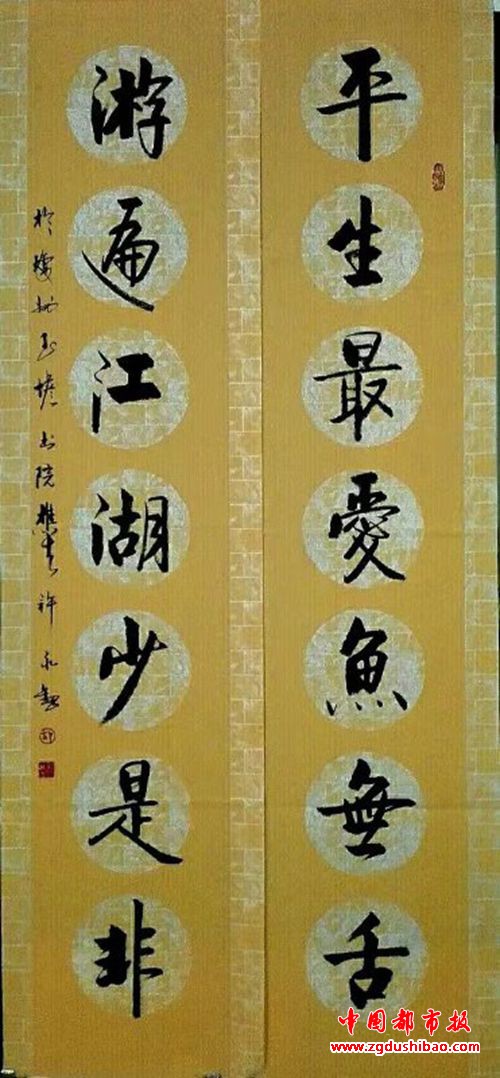 平生最愛魚無舌
游遍江湖少是非
於 玉 書院 許永
中国都市报
www.zgdushibao.com